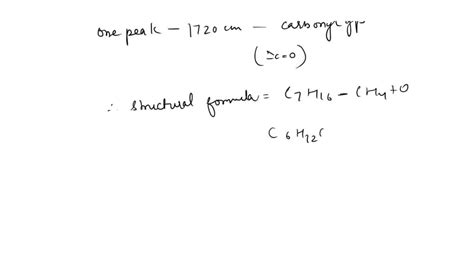 one peak - 1720 cm - carbonyl gp
(>c=0)
∴ structural formula = C7H16 - CH4+O
C6H12(